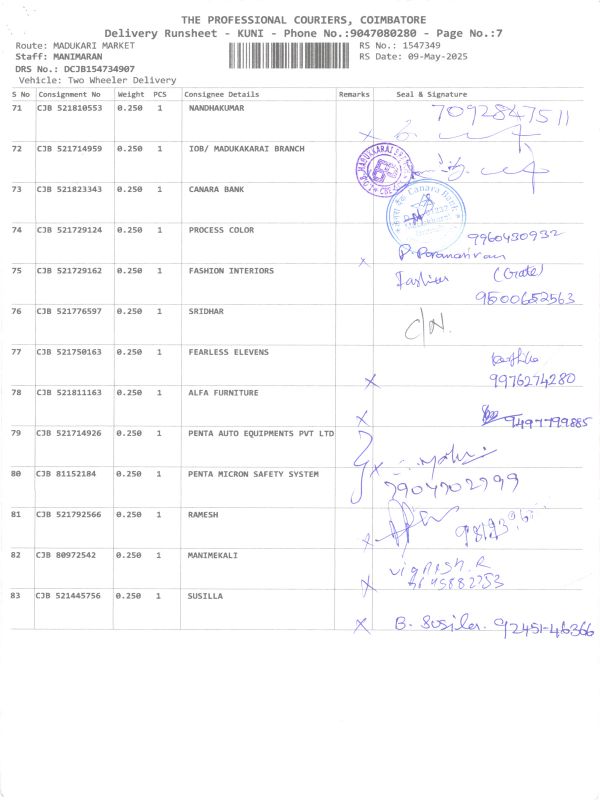 THE PROFESSIONAL COURIERS, COIMBATORE
Delivery Runsheet - KUNI - Phone No.:9047080280 - Page No.:7
Route: MADUKARI MARKET RS No.: 1547349
Staff: MANIMARAN RS Date: 09-May-2025
DRS No.: DCJB154734907
Vehicle: Two Wheeler Delivery
S No Consignment No Weight PCS Consignee Details Remarks Seal & Signature
71 CJB 521810553 0.250 1 NANDHAKUMAR 7092847511
72 CJB 521714959 0.250 1 IOB/ MADUKAKARAI BRANCH
73 CJB 521823343 0.250 1 CANARA BANK
Canara Bank
74 CJB 521729124 0.250 1 PROCESS COLOR 9960430932
75 CJB 521729162 0.250 1 FASHION INTERIORS Fashion (Gate)
9500652563
76 CJB 521776597 0.250 1 SRIDHAR C/N.
77 CJB 521750163 0.250 1 FEARLESS ELEVENS
9976274280
78 CJB 521811163 0.250 1 ALFA FURNITURE
9497799885
79 CJB 521714926 0.250 1 PENTA AUTO EQUIPMENTS PVT LTD
80 CJB 81152184 0.250 1 PENTA MICRON SAFETY SYSTEM
7904702799
81 CJB 521792566 0.250 1 RAMESH
82 CJB 80972542 0.250 1 MANIMEKALI Vignesh.R
83 CJB 521445756 0.250 1 SUSILLA
B. Susila. 92451-46366